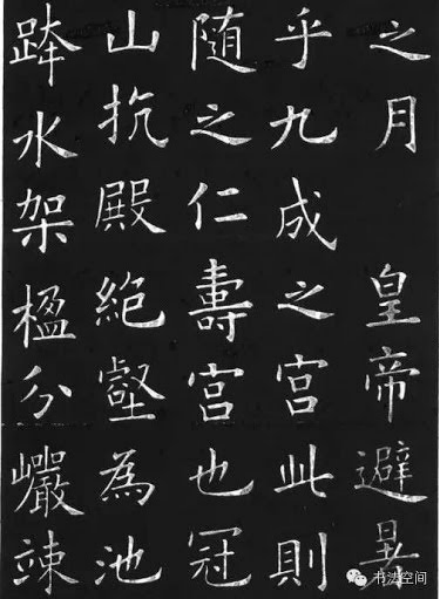 之月　皇帝避暑
乎九成之宫此則
随之仁壽宫也冠
山抗殿絶壑為池
跨水架楹分巖竦
书法空间